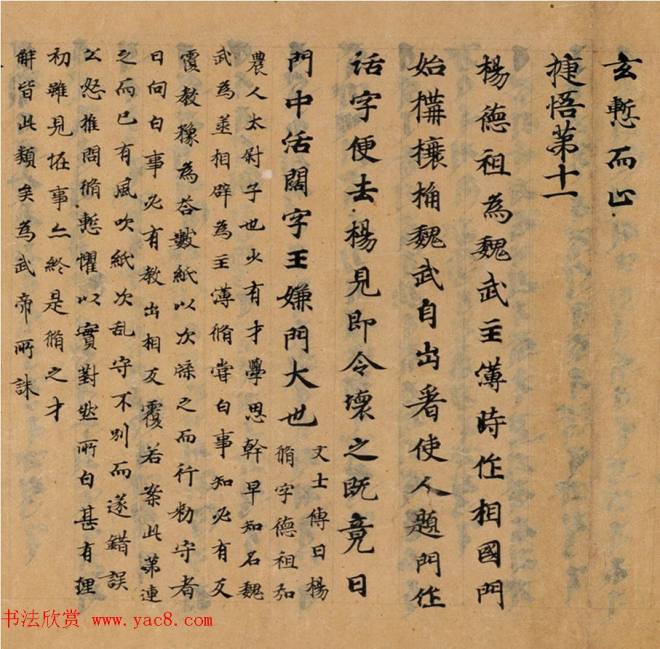 玄慙而止
捷悟第十一
楊德祖為魏武主薄時作相國門
始構攘桷魏武自出看使人題門作
活字便去楊見即令壞之既竟曰
門中活闊字王嫌門大也
文士傳曰楊
脩字德祖弘
農人太尉子也少有才學思幹早知名魏
武為丞相辟為主薄脩嘗白事知必有反
覆教豫為荅數紙以次牒之而行勑守者
曰向白事必有教出相反覆若案此第連
之而已有風吹紙次乱守不別而遂錯誤
公怒推問脩慙懼以實對然所白甚有理
初雖見怪事亦終是脩之才
解皆此類矣為武帝所誅
书法欣赏 www.yac8.com